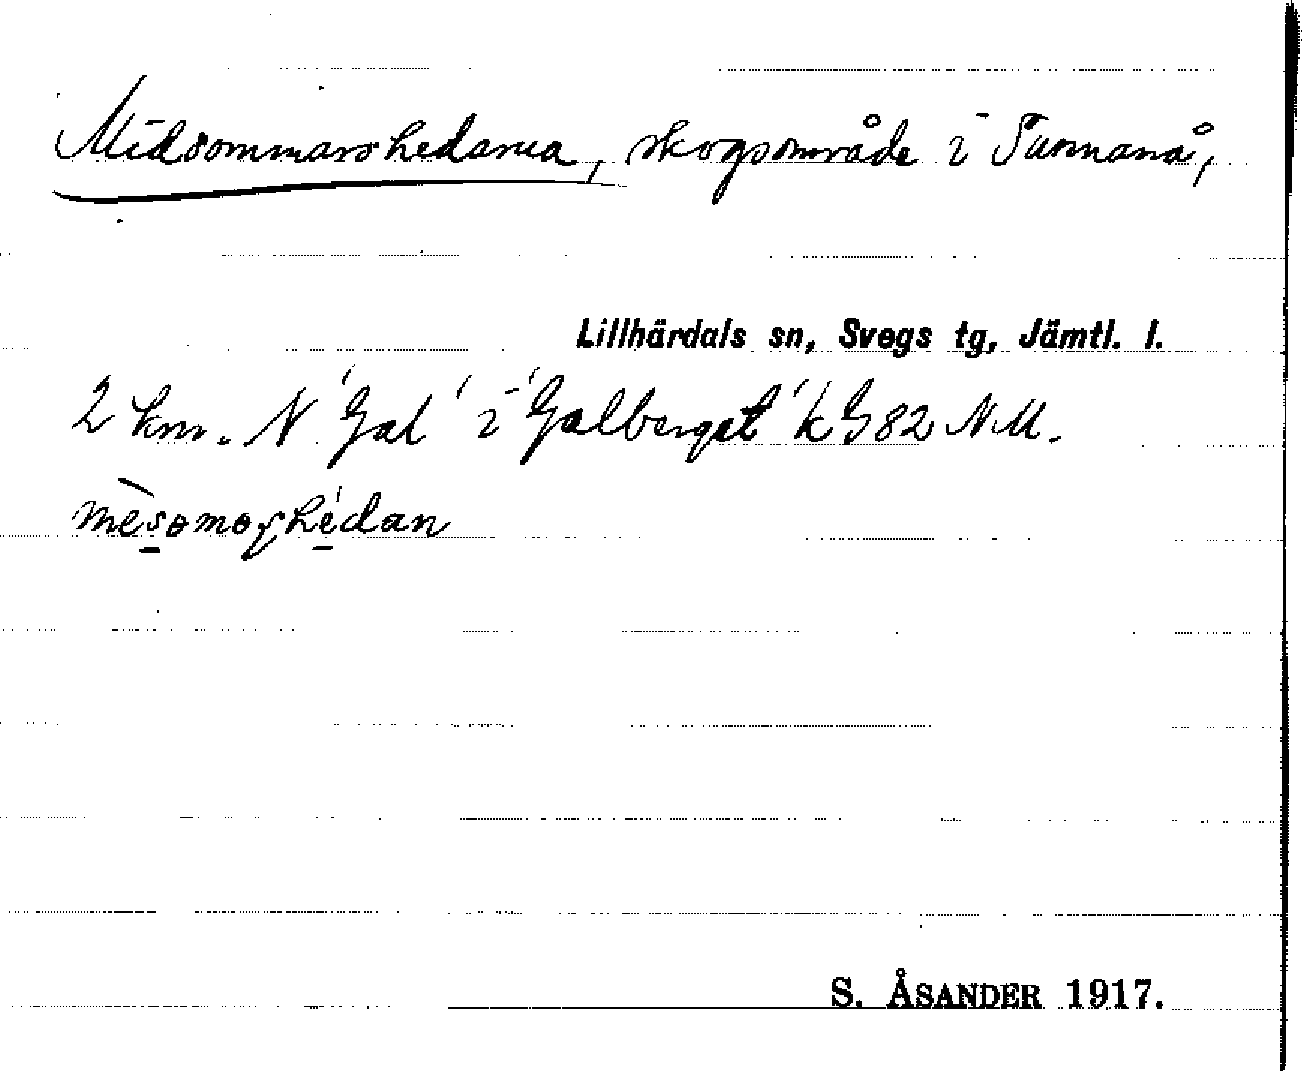 Midsommarshedarna, skogsområde i Tunnanå,
Lillhärdals sn, Svegs tg, Jämtl. l.
2 km. N 'Gal' i 'Galberget' k G82 NM.
S. ÅSANDER 1917.